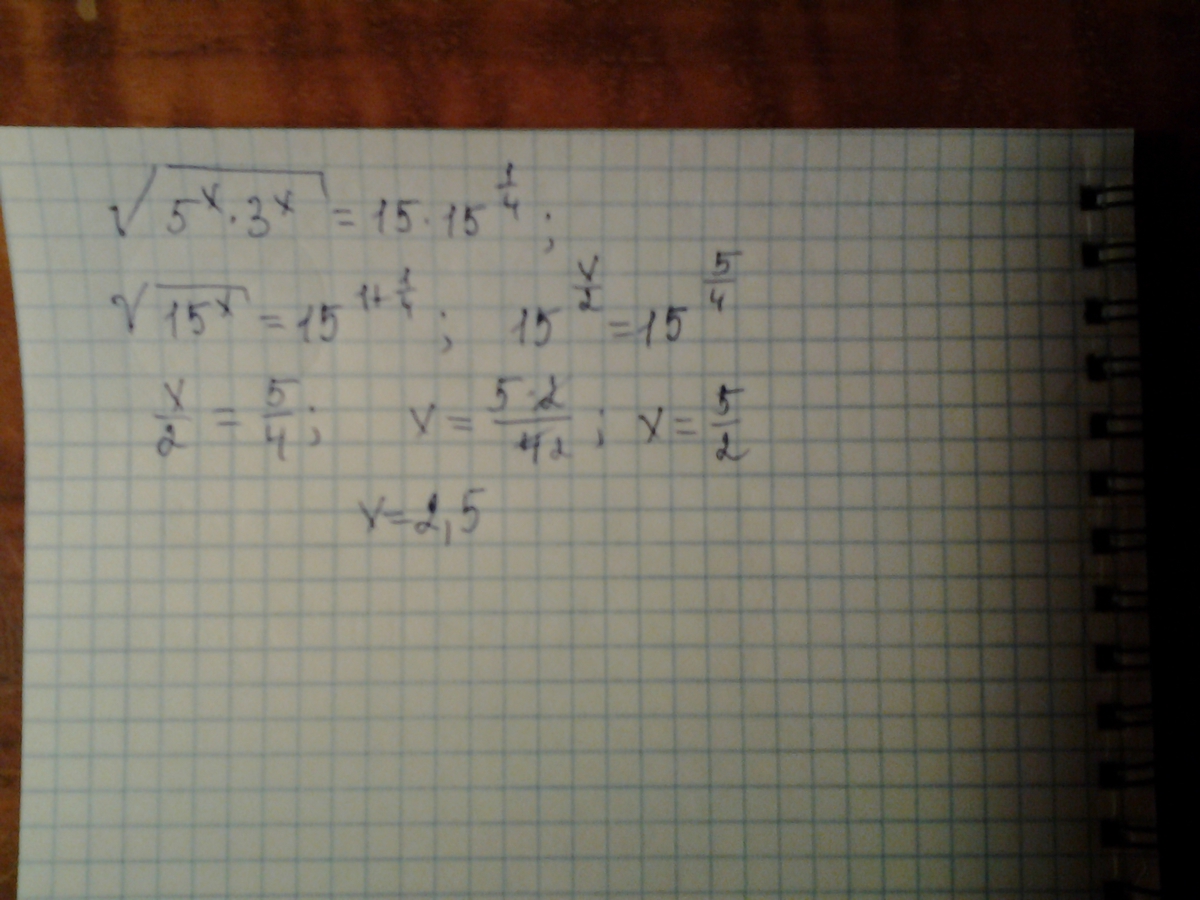 √(5^x · 3^x) = 15 · 15^(1/4) ;
√(15^x) = 15^(1+1/4) ; 15^(x/2) = 15^(5/4)
x/2 = 5/4 ; x = (5·2)/(4 2) ; x = 5/2
x = 2,5